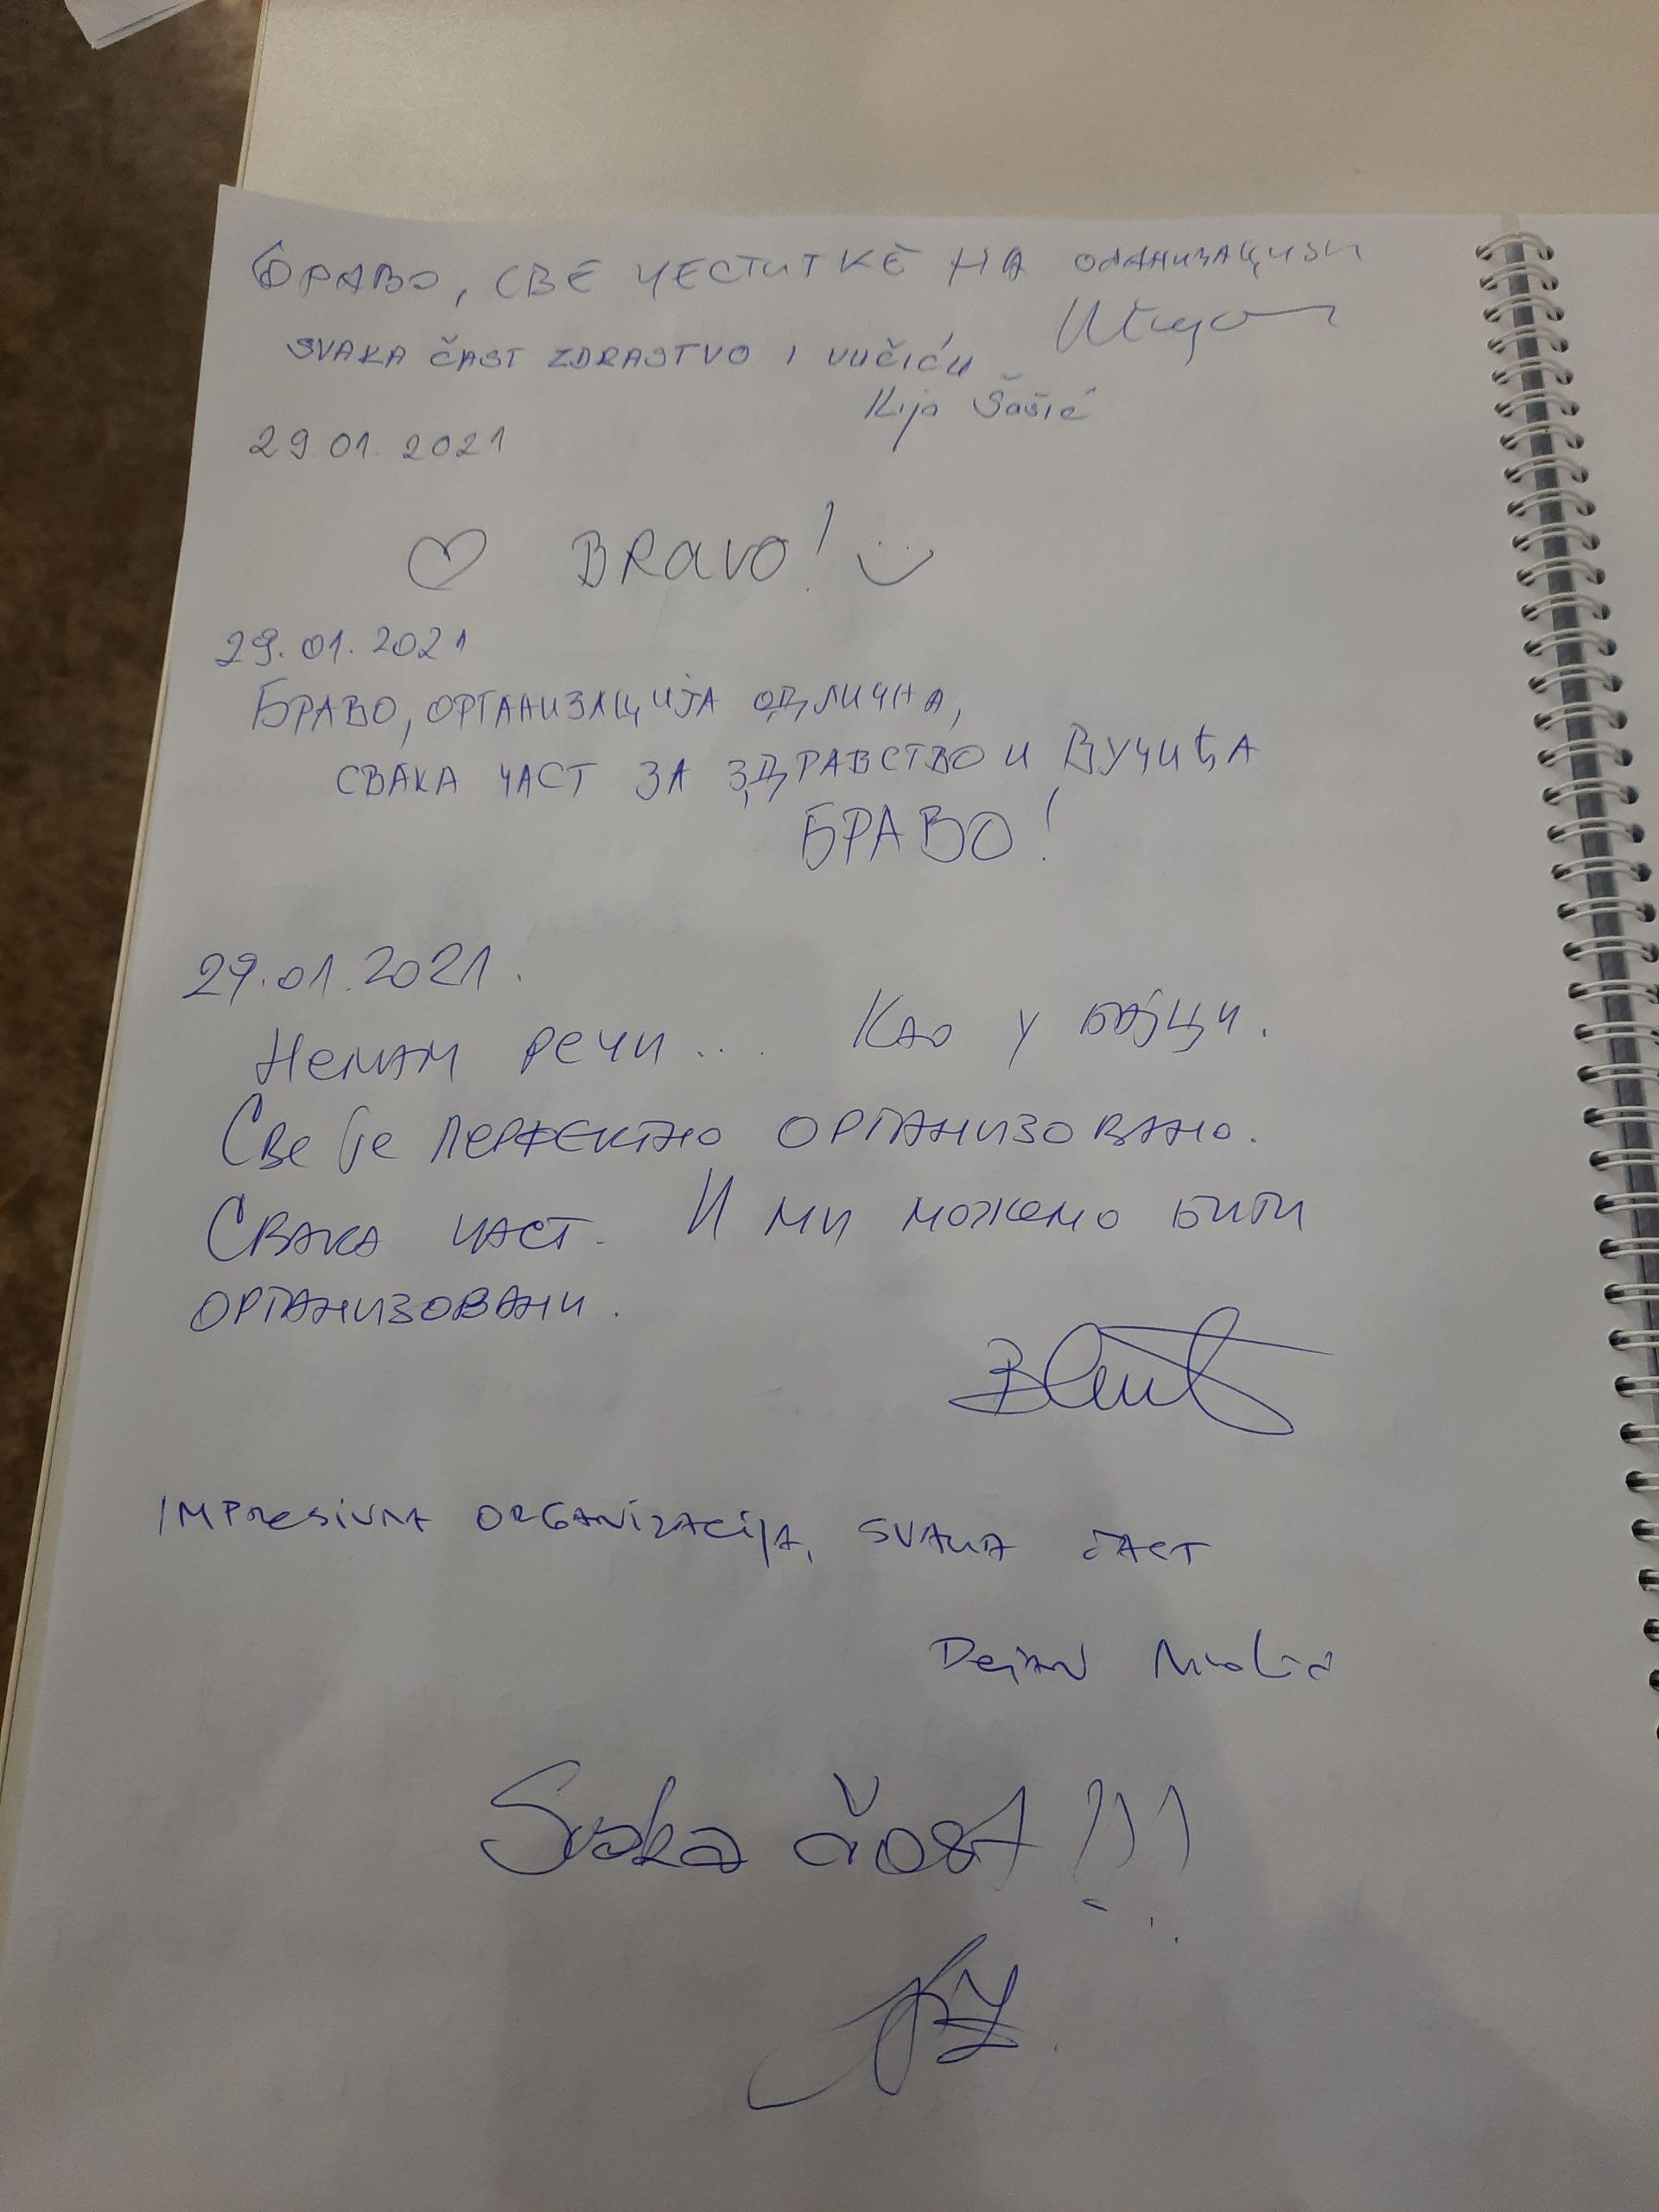 БРАВО, СВЕ ЧЕСТИТКЕ НА
SVAKA ČAST ZDRASTVO I VUČIĆU
Ilija Šašić
29.01.2021
BRavo!
29.01.2021
БРАВО, ОРГАНИЗАЦИЈА ОДЛИЧНА,
СВАКА ЧАСТ ЗА ЗДРАВСТВО И ВУЧИЋА
БРАВО!
29.01.2021.
Немам речи... Као у бајци.
Све је перфектно организовано.
Свака част. И ми можемо бити
организовани.
IMPresivna ORGANizacija, SVAKA čAST
Dejan
Svaka čast!!!